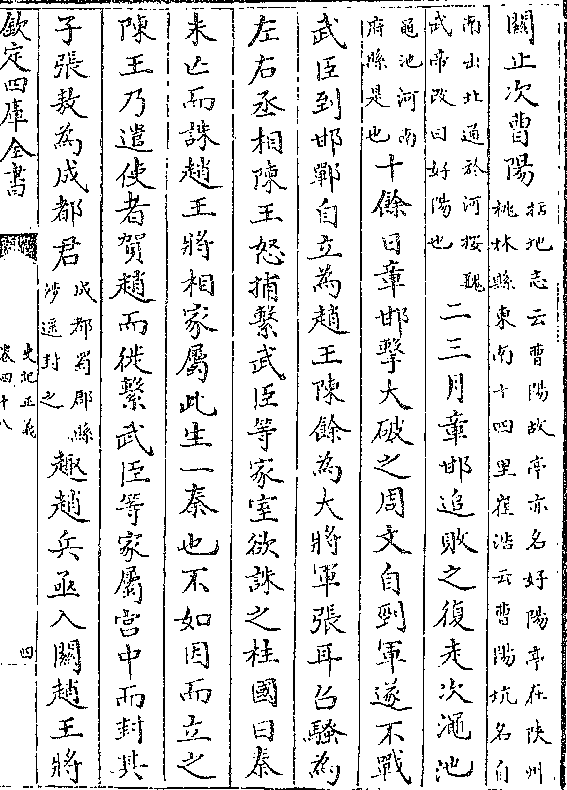 關止次曹陽括地志云曹陽故亭亦名好陽亭在陜州桃林縣東南十四里崔浩云曹陽坑名自
南出北通於河按魏武帝改曰好陽也二三月章邯追敗之復走次澠池
黽池河南府縣是也十餘日章邯擊大破之周文自剄軍遂不戰
武臣到邯鄲自立為趙王陳餘為大將軍張耳召騷為
左右丞相陳王怒捕繫武臣等家室欲誅之柱國曰秦
未亡而誅趙王將相家屬此生一秦也不如因而立之
陳王乃遣使者賀趙而徙繫武臣等家屬宫中而封其
子張敖為成都君成都蜀郡縣涉遥封之趣趙兵亟入關趙王將
欽定四庫全書
史記正義
卷四十八
四